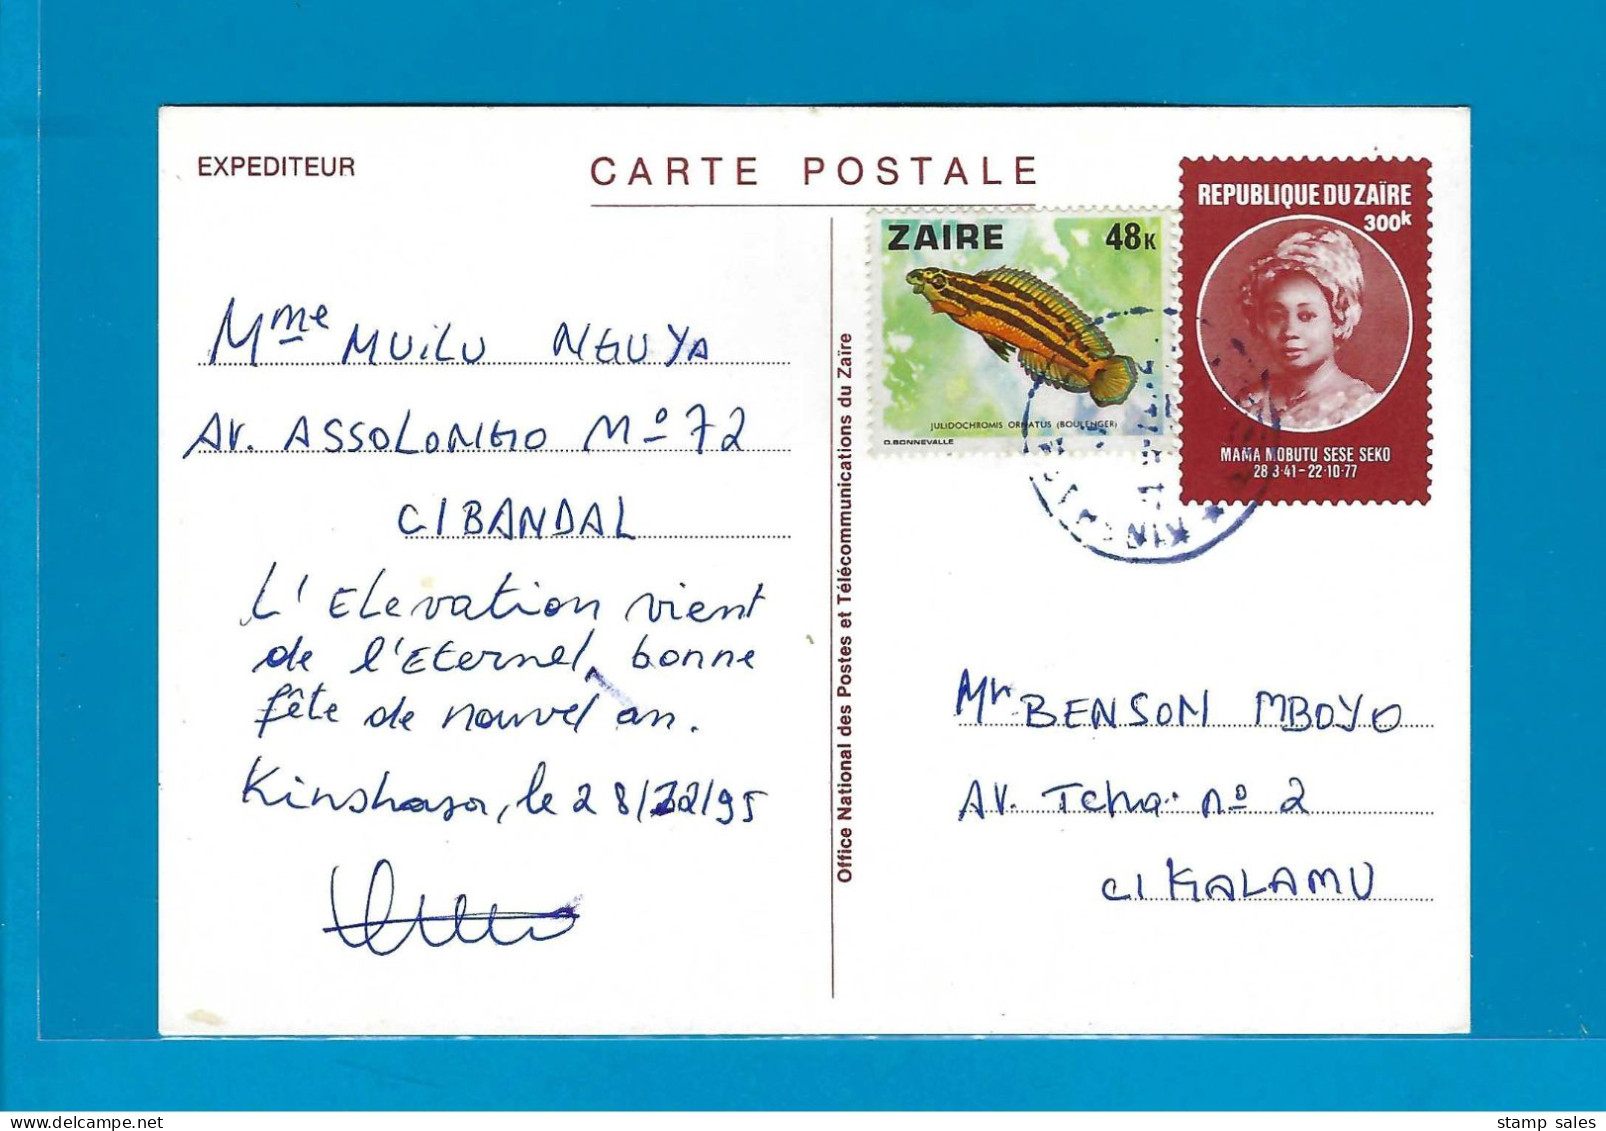 EXPEDITEUR
CARTE POSTALE
REPUBLIQUE DU ZAÏRE
300k
MAMA MOBUTU SESE SEKO
28·3·41–22·10·77
ZAIRE 48K
JULIDOCHROMIS ORNATUS (BOULENGER)
O.BONNEVALLE
Mme MUILU NGUYA
AV. ASSOLONGO No 72
C/BANDAL
L'Elevation vient
de l'Eternel, bonne
fête de nouvel an.
Kinshasa, le 28/12/95
Office National des Postes et Télécommunications du Zaïre
Mr BENSON MBOYO
AV. Tcha no 2
C/KALAMU
stamp sales